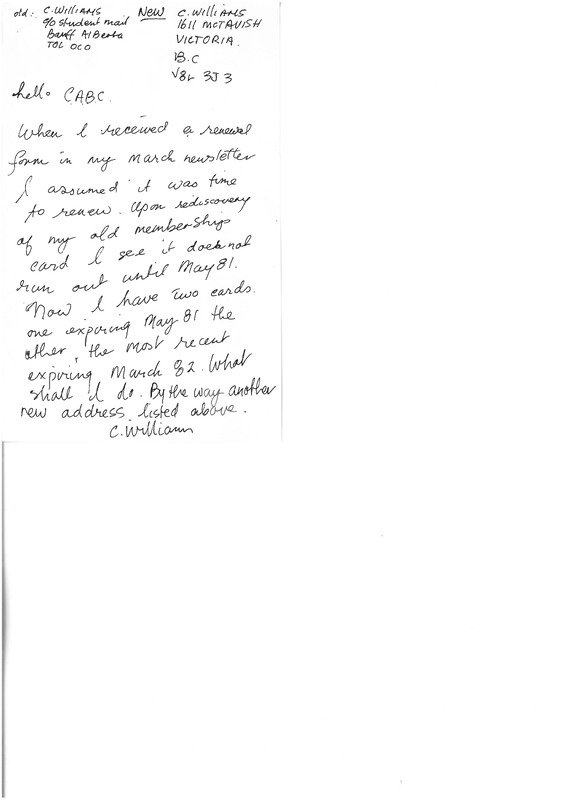 old: C. Williams
c/o student mail
Banff Alberta
T0L 0C0
New C. Williams
1611 McTavish
Victoria.
B.C
V8L 3J3
hello CABC.
When I received a renewal
form in my March newsletter
I assumed it was time
to renew. Upon rediscovery
of my old memberships
card I see it does not
run out until May 81.
Now I have two cards.
one expiring May 81 the
other, the most recent
expiring March 82. What
shall I do. By the way another
new address listed above.
C. Williams